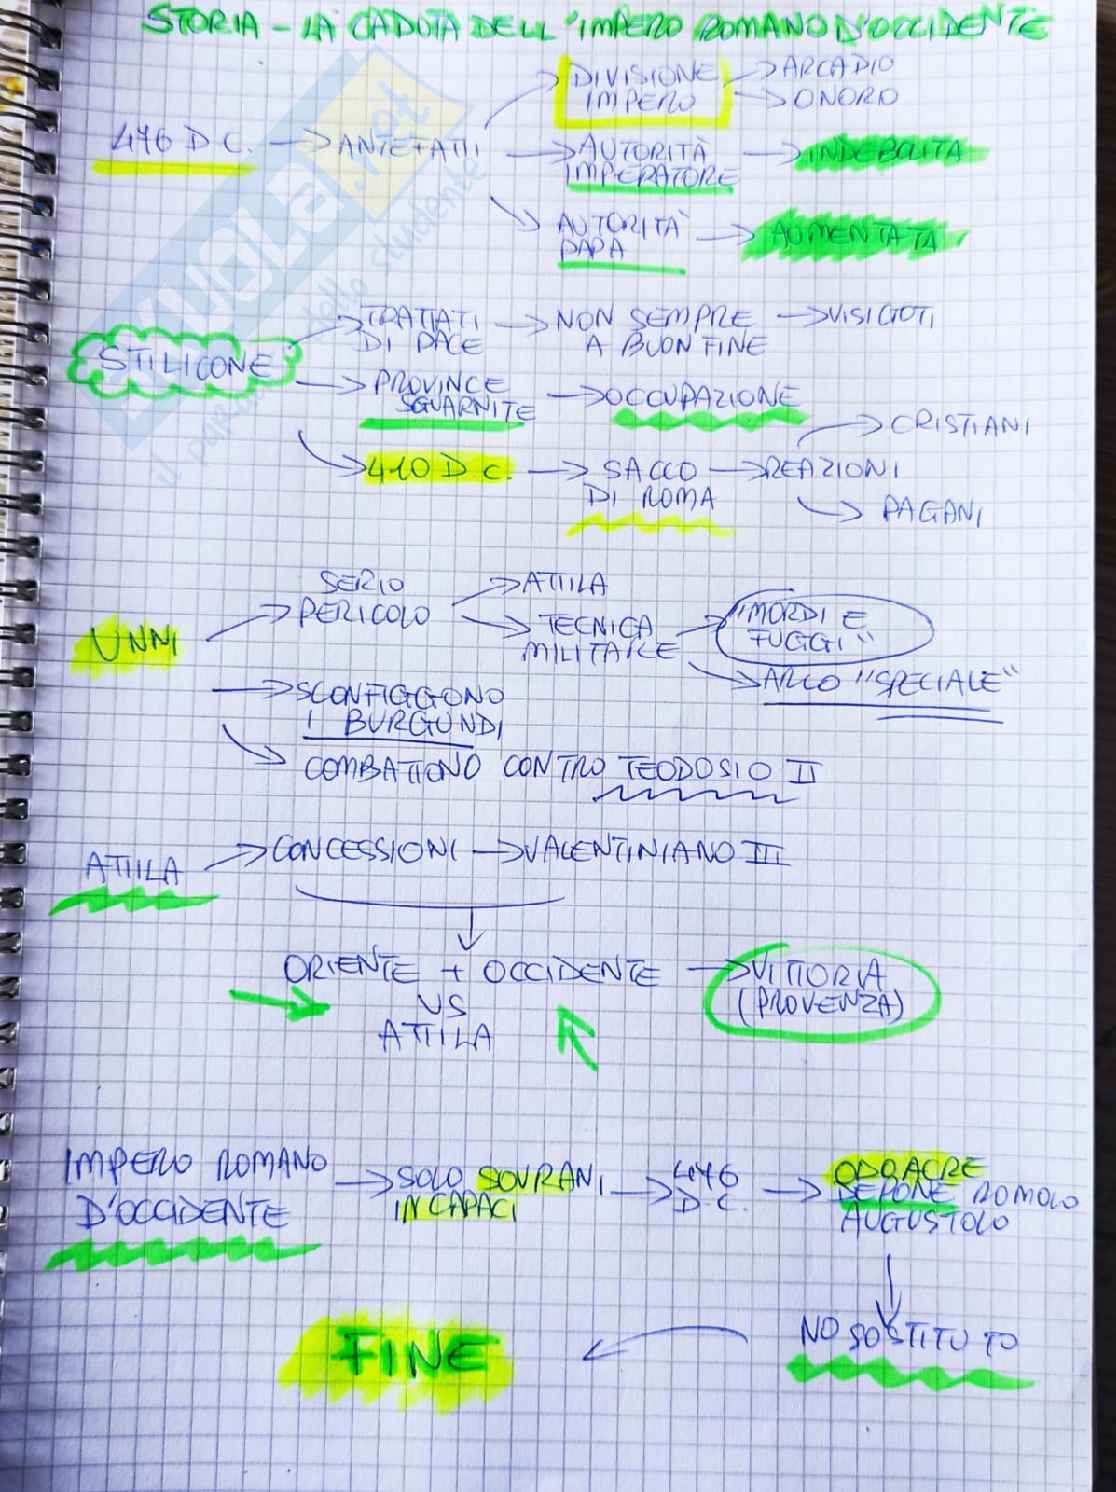 STORIA - LA CADUTA DELL'IMPERO ROMANO D'OCCIDENTE
476 D.C. → ANTEFATTI
→ DIVISIONE IMPERO
→ ARCADIO
→ ONORO
→ AUTORITÀ IMPERATORE → INDEBOLITA
→ AUTORITÀ PAPA → AUMENTATA
STILICONE
→ TRATTATI DI PACE → NON SEMPRE A BUON FINE → VISIGOTI
→ PROVINCE SGUARNITE → OCCUPAZIONE
→ 410 D.C. → SACCO DI ROMA → REAZIONI
→ CRISTIANI
→ PAGANI
UNNI
→ SERIO PERICOLO
→ ATTILA
→ TECNICA MILITARE
→ "MORDI E FUGGI"
→ ARCO "SPECIALE"
→ SCONFIGGONO I BURGUNDI
→ COMBATTONO CONTRO TEODOSIO II
ATTILA → CONCESSIONI → VALENTINIANO III
ORIENTE + OCCIDENTE → VITTORIA (PROVENZA)
VS
ATTILA
IMPERO ROMANO D'OCCIDENTE → SOLO SOVRANI INCAPACI → 476 D.C. → ODOACRE DEPONE ROMOLO AUGUSTOLO
NO SOSTITUTO
FINE
SKUOLA.net
il paradiso dello studente